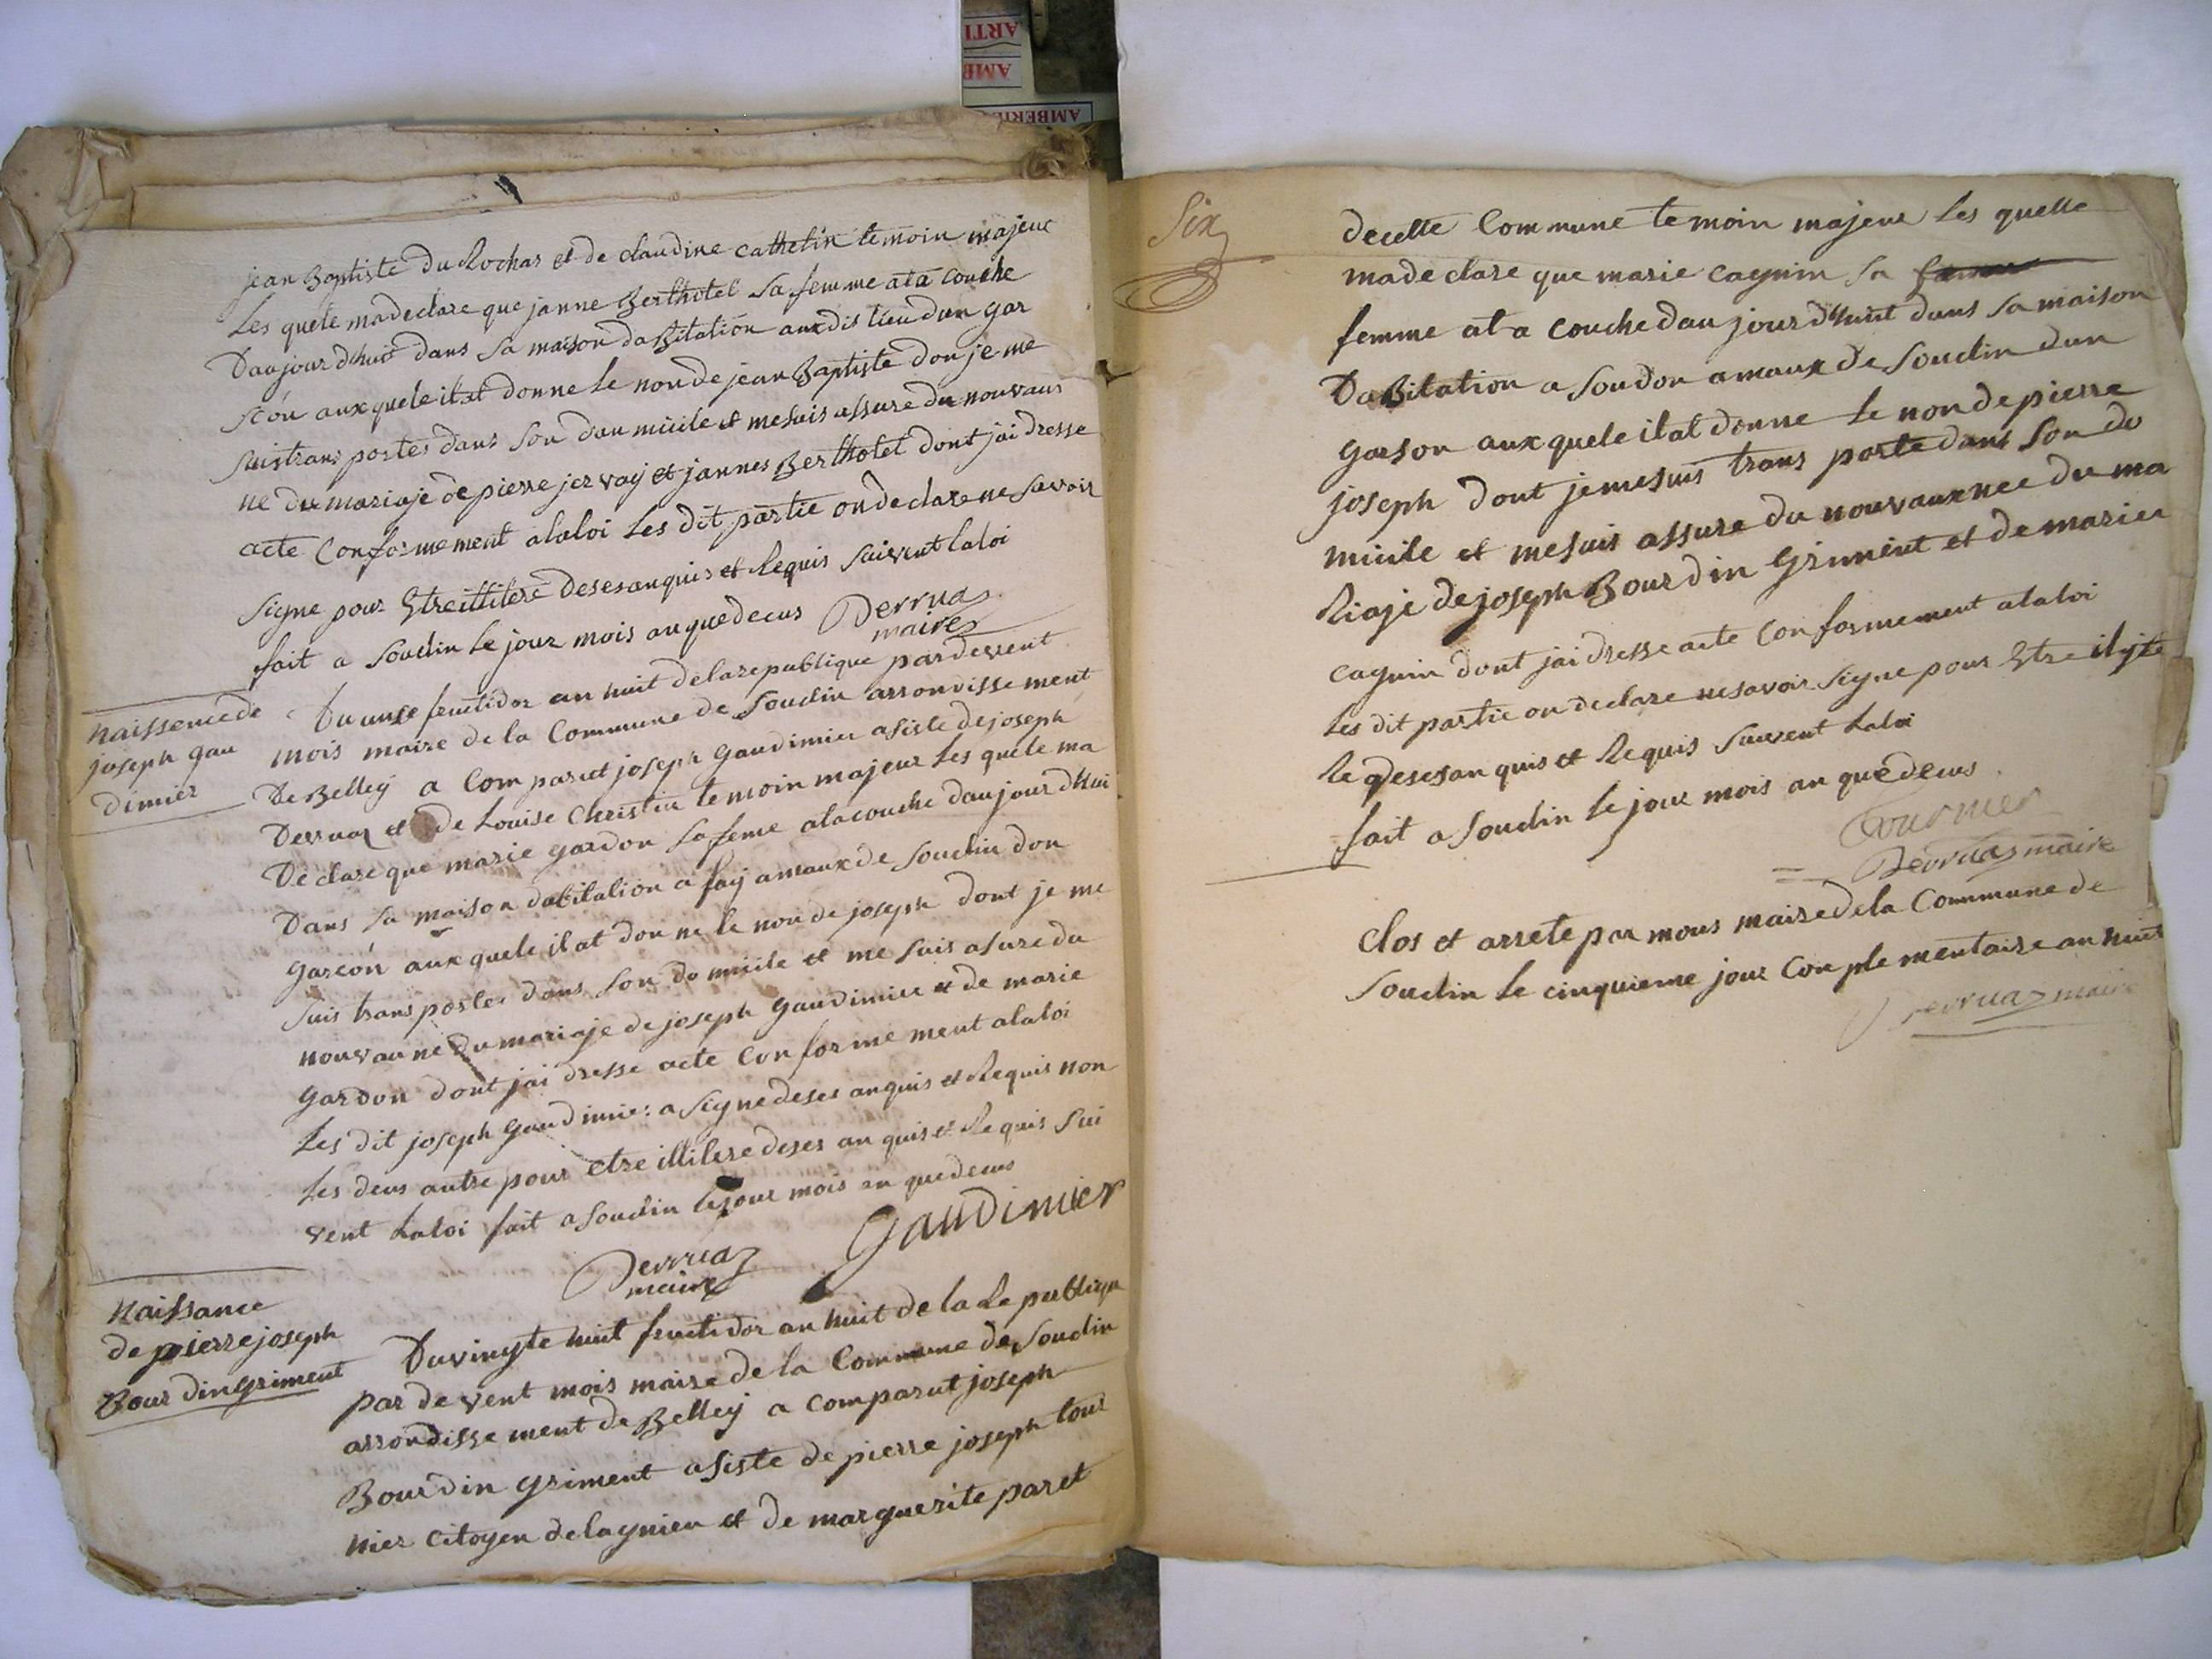 ARTI
AMB
AMBERIE
jean Baptiste du Rochas et de claudine cathelin temoin majeur
Les quele madeclare que janne Berthotel sa femme at a couche
Daujourdhuit dans sa maison daBitation auxdis lieu dun gar
scon auxquele il at donne le non de jean Baptiste don je me
suis trans portes dans son daumicile et me suis assure du nouvaux
ne du mariaje de pierre jervay et jannes Berthotel dont jai dresse
acte Conformement alaloi Les dit partie on declare ne savoir
signe pour Etre illitere desesanquis et Requis suivent laloi
fait a Soudin le jour mois an quedecus Derruaz
maire
Naissence de
joseph gau
dimier
Du unse fructidor an huit delarepublique pardevent
mois maire de la Commune de Soudin arrondissement
De Belley a Comparut joseph gaudimier asiste de joseph
Derruaz et de Louise Christin temoin majeur Les quele ma
Declare que marie gardon sa feme at a couche daujourdhui
Dans sa maison dabitation a fay amaux de Soudin don
garcon aux quele il at donne le non de joseph dont je me
suis trans portes dans son domicile et me suis asure du
nouvau ne du mariaje de joseph gaudimier et de marie
gardon dont jai dresse acte Conforme ment alaloi
Les dit joseph gaudimier a signe deses anquis et Requis non
Les deus autre pour etre illitere deses anquis et Requis sui
vent Laloi fait a Soudin le jour mois an quedecus
Derruaz
maire
gaudimier
Naissance
de pierre joseph
Bourdin griment
Du vingte huit fructidor an huit de la Republique
par devent mois maire de la Commune de Soudin
arrondisse ment de Belley a comparut joseph
Bourdin griment asiste de pierre joseph tour
nier Citoyen delagnieu et de marguerite paret
Six
decette Commune temoin majeur Les quelle
madeclare que marie cagnin sa femme
femme at a couche daujourdhuit dans sa maison
DaBitation a Soudon amaux de Soudin dun
garson aux quele il at donne le non de pierre
joseph dont je me suis trans porte dans son do
micile et me suis assure du nouvaux nee du ma
Riaje de joseph Bourdin griment et de marie
cagnin dont jai dresse acte Conformement alaloi
Les dit partie on declare ne savoir signe pour Etre ilite
Re desesanquis et Requis suivent Laloi
fait a Soudin le jour mois an quedecus
tournier
Derruaz maire
Clos et arrete par mous maire de la Commune de
Soudin le cinquieme jour Complementaire an huit
Derruaz maire